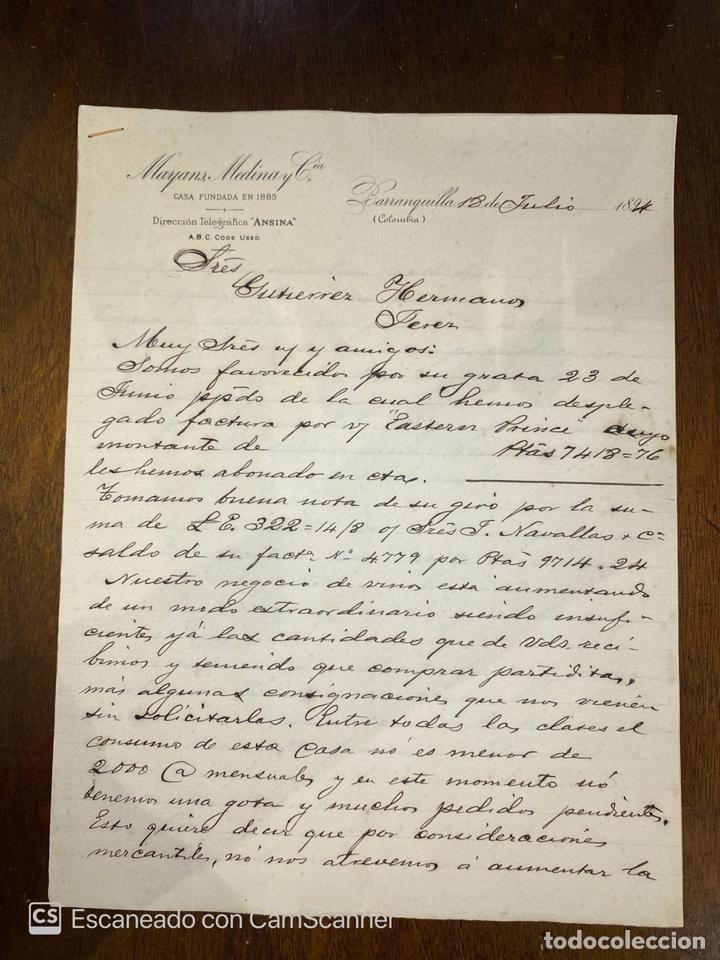 Mayans, Medina y Cia.
CASA FUNDADA EN 1885
Dirección Telegráfica "ANSINA"
A.B.C. CODE USED.
Barranquilla 18 de Julio 1894
(Colombia)
Srés
Gutierrez Hermanos
Jerez
Muy Srés n/ y amigos:
Somos favorecidos por su grata 23 de
Junio ppdo de la cual hemos desple-
gado factura por v/ "Eastern Prince" cuyo
montante de Ptás 7418=76
les hemos abonado en cta.
Tomamos buena nota de su giro por la su-
ma de £E. 322=14/8 o/ Srés J. Navallas & Ca
saldo de su facta No 4779 por Ptás 9714.24
Nuestro negocio de vinos está aumentando
de un modo extraordinario siendo insufi-
cientes yá las cantidades que de Vds. reci-
bimos y teniendo que comprar partiditas,
más algunas consignaciones que nos vienen
sin solicitarlas. Entre todas las clases el
consumo de esta casa nó es menor de
2000 @ mensuales y en este momento nó
tenemos una gota y muchos pedidos pendientes.
Esto quiere decir que por consideraciones
mercantiles, nó nos atrevemos á aumentar la
CS Escaneado con CamScanner
todocoleccion